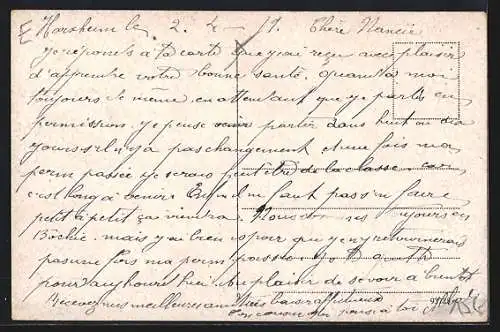 Horsheim le 2. 4 - 19. Chère Nancie
je réponds à ta carte que j'ai reçu avec plaisir
d'apprendre votre bonne santé. quand à moi
toujours le même. en attendant que je parte en
permission. je pense partir dans huit ou dix
jours s'il n'y a pas changement et une fois ma
perm passée je serais peut être de la classe. car
c'est long a venir. Enfin il ne faut pas s'en faire
petit à petit ça viendra. Nous sommes toujours en
Bochie. mais j'ai bien espoir que je n'y retournerais
pas une fois ma perm passée.
pour aujourd'hui. Au plaisir de se voir à bientôt
Recevez mes meilleures amitiés baisers affectueux